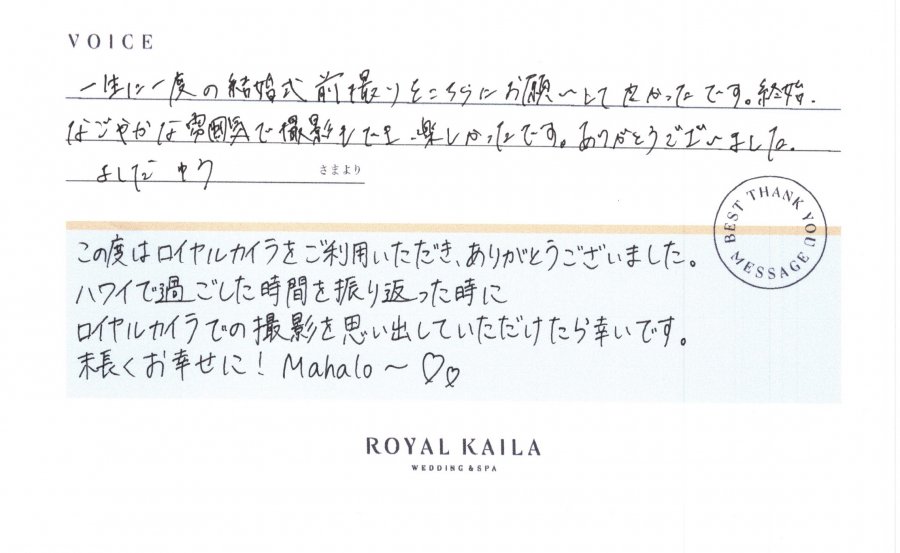 VOICE
一生に一度の結婚式前撮りをこちらにお願いして良かったです。終始、
なごやかな雰囲気で撮影もでき、楽しかったです。ありがとうございました。
よしだ ゆう さまより
BEST THANK YOU MESSAGE
この度はロイヤルカイラをご利用いただき、ありがとうございました。
ハワイで過ごした時間を振り返った時に
ロイヤルカイラでの撮影を思い出していただけたら幸いです。
末長くお幸せに! Mahalo~♡♡
ROYAL KAILA
WEDDING & SPA